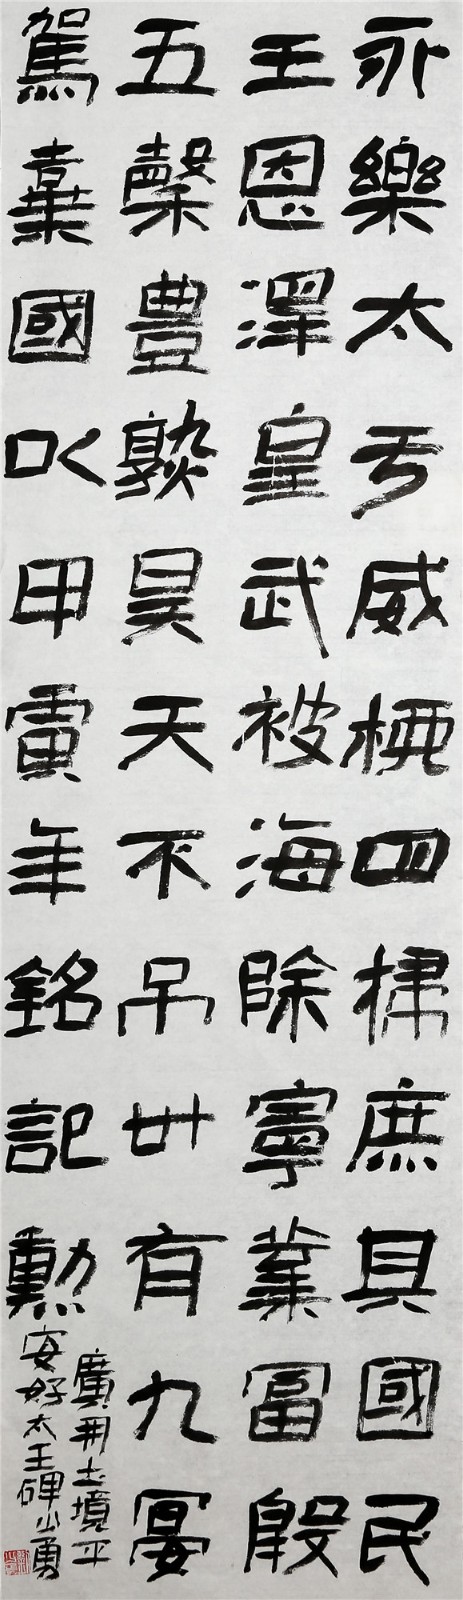 永樂太亏威栖四庶具國民
王恩澤皇武被海除寧業富殷
五穀豊熟昊天不弔卅有九宴
駕棄國以甲寅年銘記勲
廣開土境平
安好太王碑勇